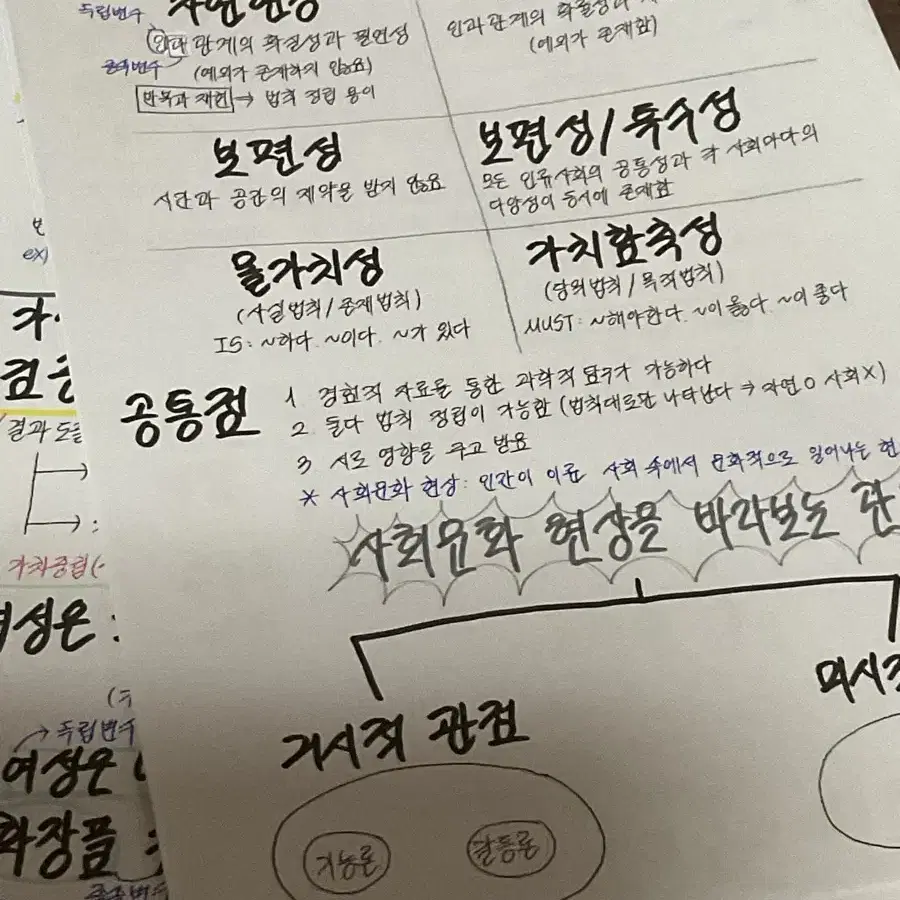 독립변수
자연현상
인과 관계의 확실성과 필연성
종속변수 (예외가 존재하지 않아요)
반복과 재현 → 법칙 정립 용이
(예외가 존재함)
보편성
시간과 공간의 제약을 받지 않아요
보편성/특수성
모든 인류사회의 공통성과 각 사회마다의
다양성이 동시에 존재함
몰가치성
(사실법칙/존재법칙)
IS: ~하다. ~이다. ~가 있다
가치함축성
(당위법칙/목적법칙)
MUST: ~해야한다. ~이 옳다. ~이 좋다
공통점
1 경험적 자료를 통한 과학적 탐구가 가능하다
2. 둘다 법칙 정립이 가능함 (법칙대로만 나타난다 ⇒ 자연O 사회X)
3 서로 영향을 주고 받음
* 사회문화 현상: 인간이 이룬 사회 속에서 문화적으로 일어나는 현
사회문화 현상을 바라보는 관
거시적 관점
미시적
기능론
갈등론
ex)
결과 도출
가치중립(
여성은 :
→ 독립변수
여성은
화장품
종속변수